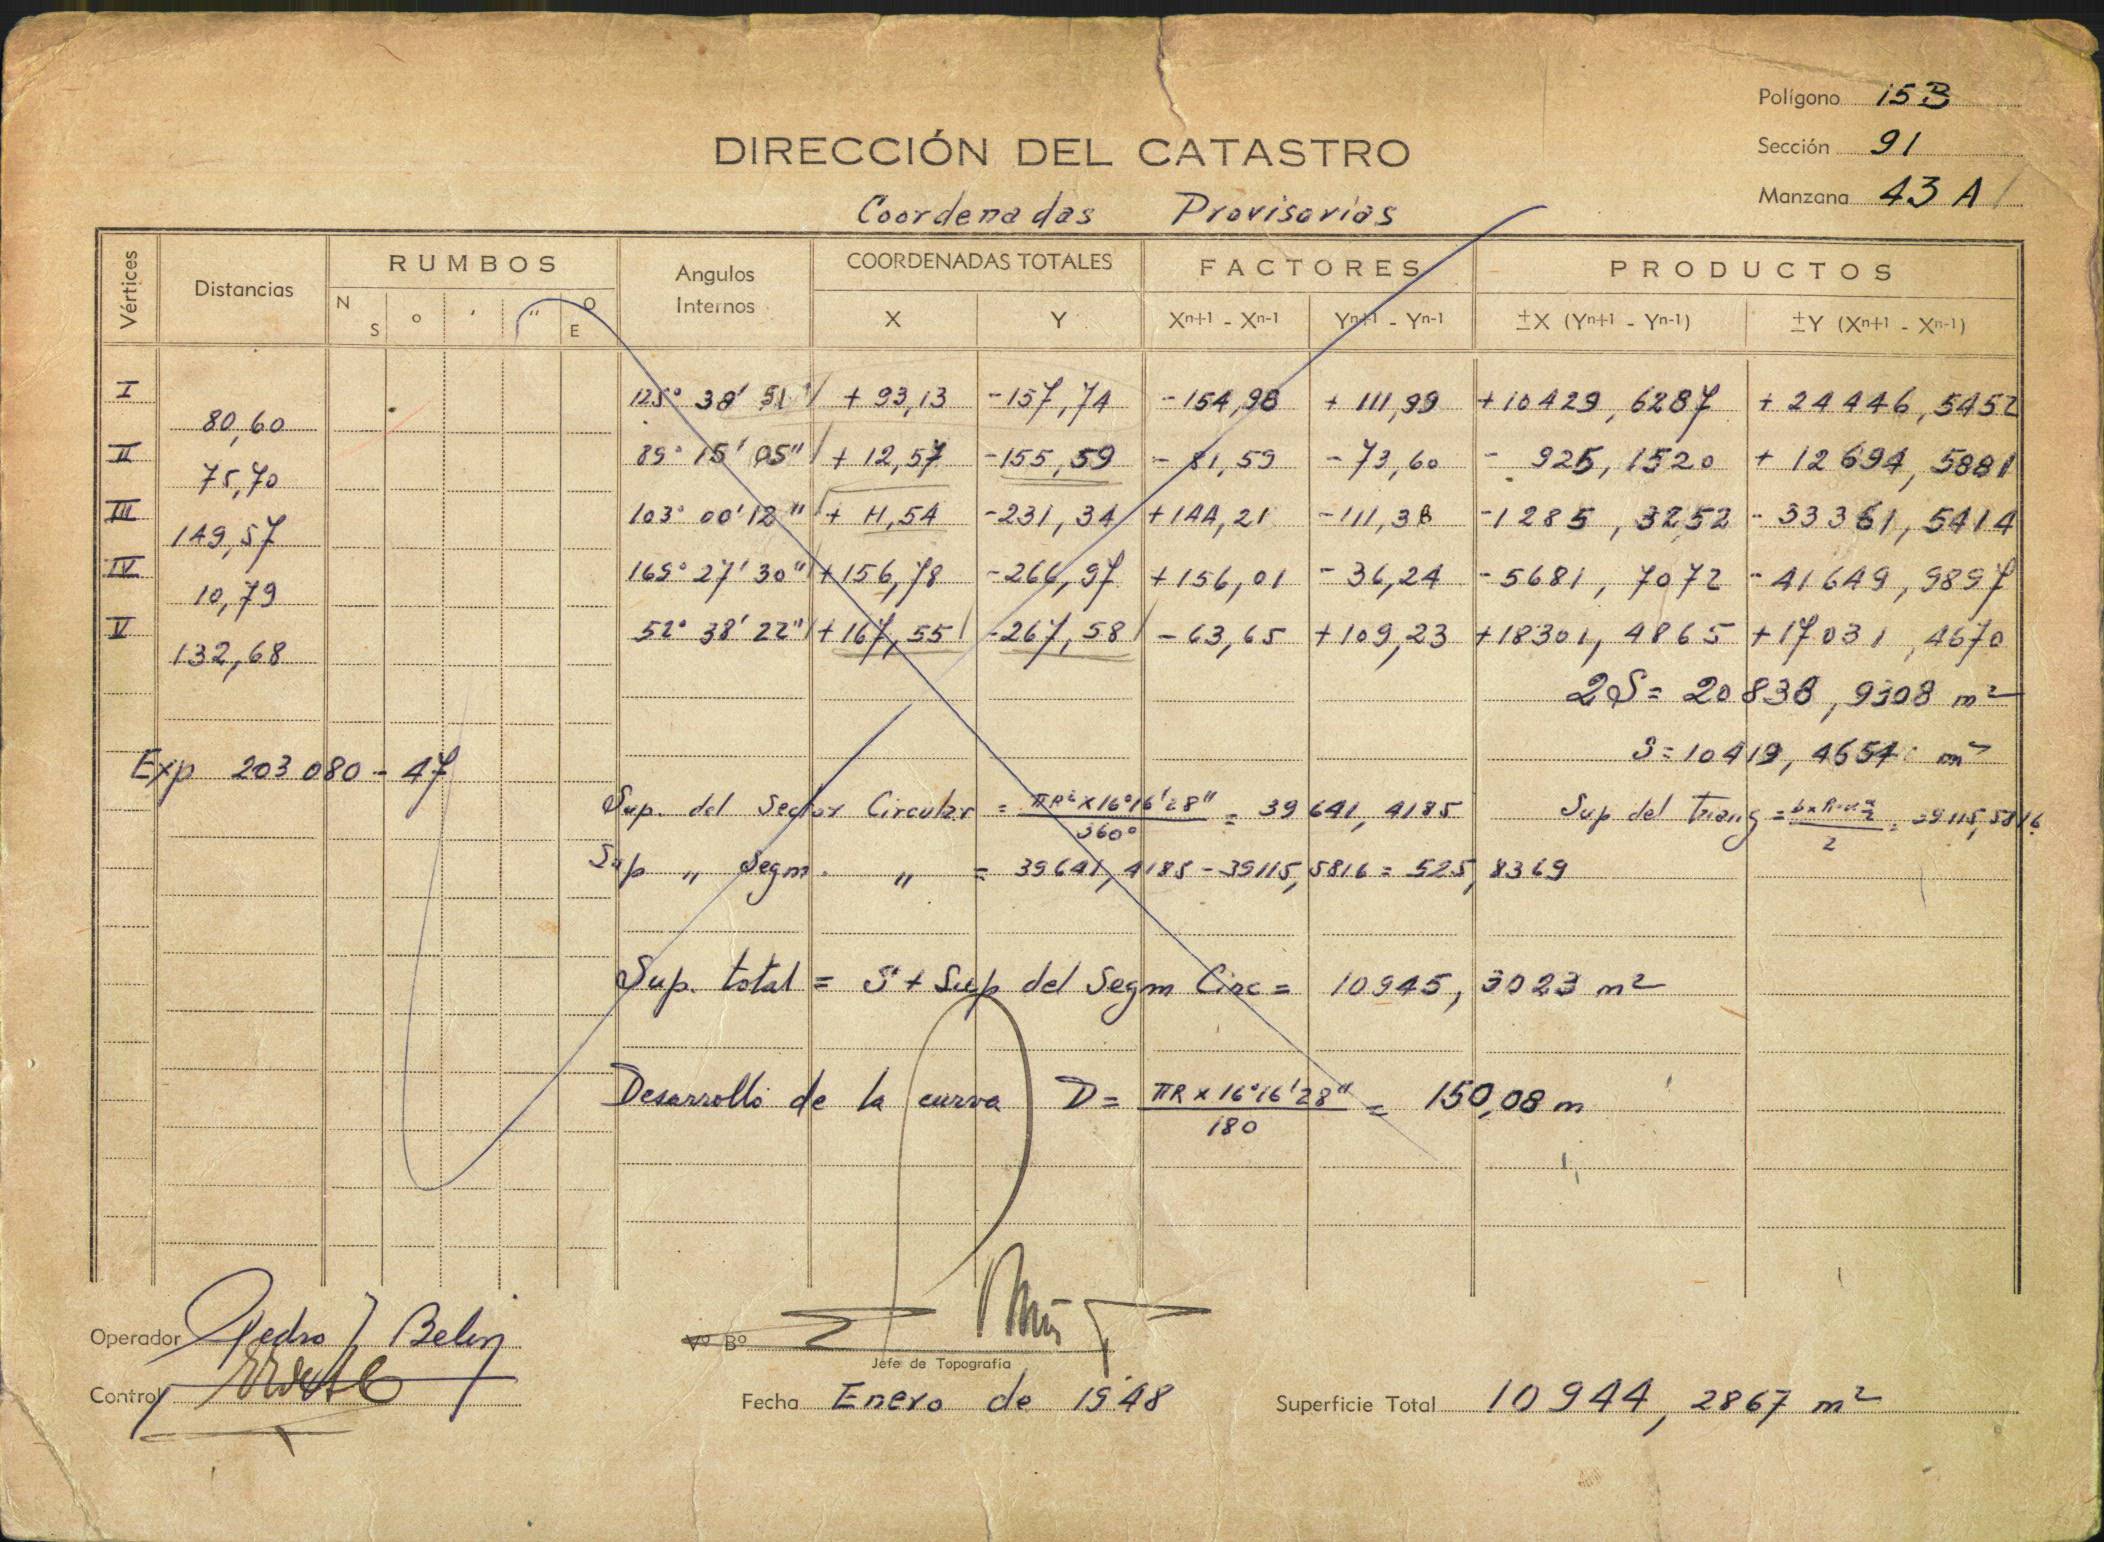 Polígono 15B
Sección 91
Manzana 43 A
DIRECCIÓN DEL CATASTRO
Coordenadas Provisorias
Vértices Distancias RUMBOS Angulos Internos COORDENADAS TOTALES FACTORES PRODUCTOS
N S o ' " O E X Y Xn+1 - Xn-1 Yn+1 - Yn-1 ±X (Yn+1 - Yn-1) ±Y (Xn+1 - Xn-1)
I 125° 38' 51" + 93,13 -157,74 -154,98 + 111,99 +10429,6287 + 24446,5452
80,60
II 89° 15' 05" + 12,57 -155,59 - 81,59 -73,60 - 925,1520 + 12694,5881
75,70
III 103° 00' 12" + 11,54 -231,34 +144,21 -111,38 -1285,3252 - 33361,5414
149,57
IV 169° 27' 30" +156,78 -266,97 +156,01 -36,24 -5681,7072 -41649,9897
10,79
V 52° 38' 22" +167,55 -267,58 -63,65 +109,23 +18301,4865 +17031,4670
132,68
2S = 20838,9308 m²
S = 10419,4654 m²
Exp 203080-47
Sup. del Sector Circular = πR² x 16°16'28" / 360° = 39641,4185 Sup del Triang = / 2 = 39115,5816
Sup " Segm. " = 39641,4185 - 39115,5816 = 525,8369
Sup. total = S + Sup del Segm Circ = 10945,3023 m²
Desarrollo de la curva D = πR x 16°16'28" / 180 = 150,08 m
Operador Pedro J Belin
Vº Bº
Jefe de Topografía
Control
Fecha Enero de 1948
Superficie Total 10944,2867 m²